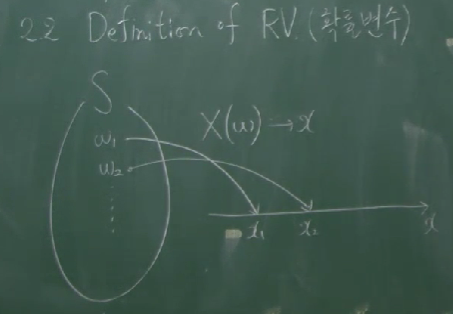 2.2 Definition of RV. (확률변수)
S
X(ω)→x
ω₁
ω₂
x₁ x₂ x